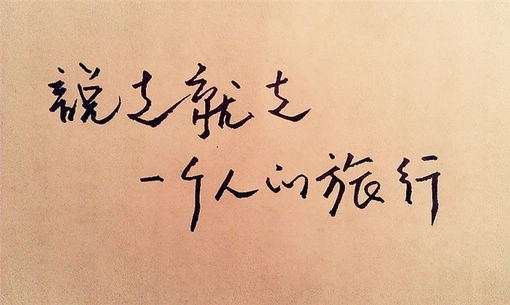 說走就走
一个人的旅行